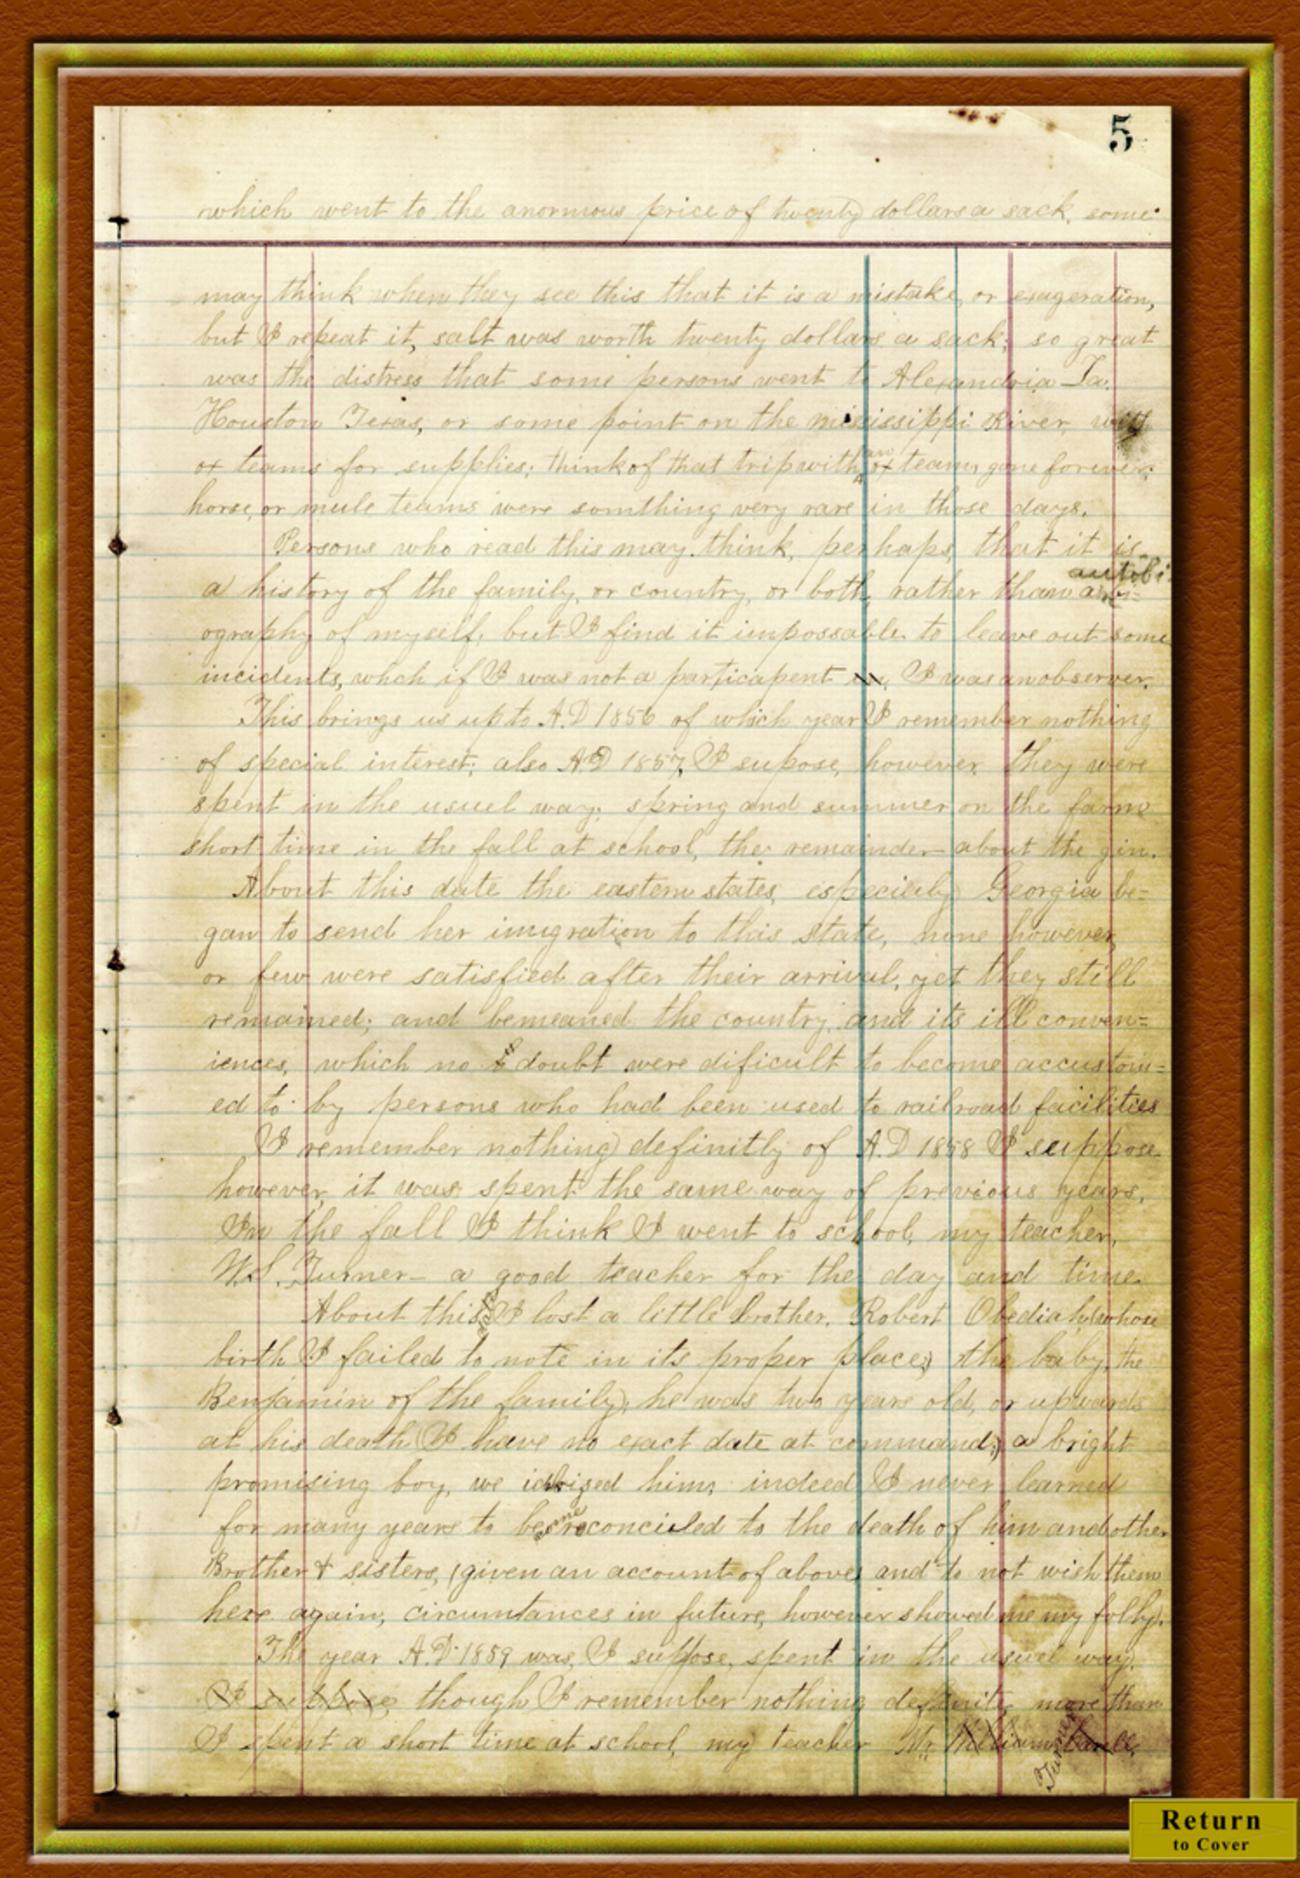 5
which went to the anormous price of twenty dollars a sack, some
may think when they see this that it is a mistake, or exageration,
but I repeat it, salt was worth twenty dollars a sack; so great
was the distress that some persons went to Alexandria La.
Houston Texas, or some point on the mississippi River, with
ox teams for supplies; think of that trip with an ox team, gone forever;
horse, or mule teams were somthing very rare in those days.
Persons who read this may think, perhaps, that it is
a history of the family, or country, or both, rather than autobi-
ography of myself; but I find it impossable to leave out some
incidents, whch if I was not a particapent I was an observer.
This brings us up to A.D 1856 of which year I remember nothing
of special interest; also A.D 1857, I supose, however, they were
spent in the usuel way; spring and summer on the farm
short time in the fall at school, the remainder about the gin.
About this date the eastern states, especialy Georgia be=
gan to send her imigration to this state, none however,
or few were satisfied after their arrival, yet they still
remained; and bemeaned the country, and its ill conven=
iences, which no doubt were dificult to become accustom=
ed to by persons who had been used to railroad facilities
I remember nothing definitly of A.D 1858 I suppose
however, it was spent the same way of previous years,
In the fall I think I went to school, my teacher,
W.S. Turner- a good teacher for the day and time.
About this date I lost a little brother, Robert Obediah (whose
birth I failed to note in its proper place;) the baby, the
Benjamin of the family; he was two years old, or upwards
at his death (I have no exact date at command;) a bright
promising boy, we idolized him; indeed I never learned
for many years to become reconciled to the death of him and other
Brother & sisters, (given an account of above) and to not wish them
here again, circumtances in future, however showed me my folly.
The year A.D. 1859 was, I suppose, spent in the usuel way,
I suppose, though I remember nothing definite, more than
I spent a short time at school, my teacher Mr William
Turner
Return
to Cover